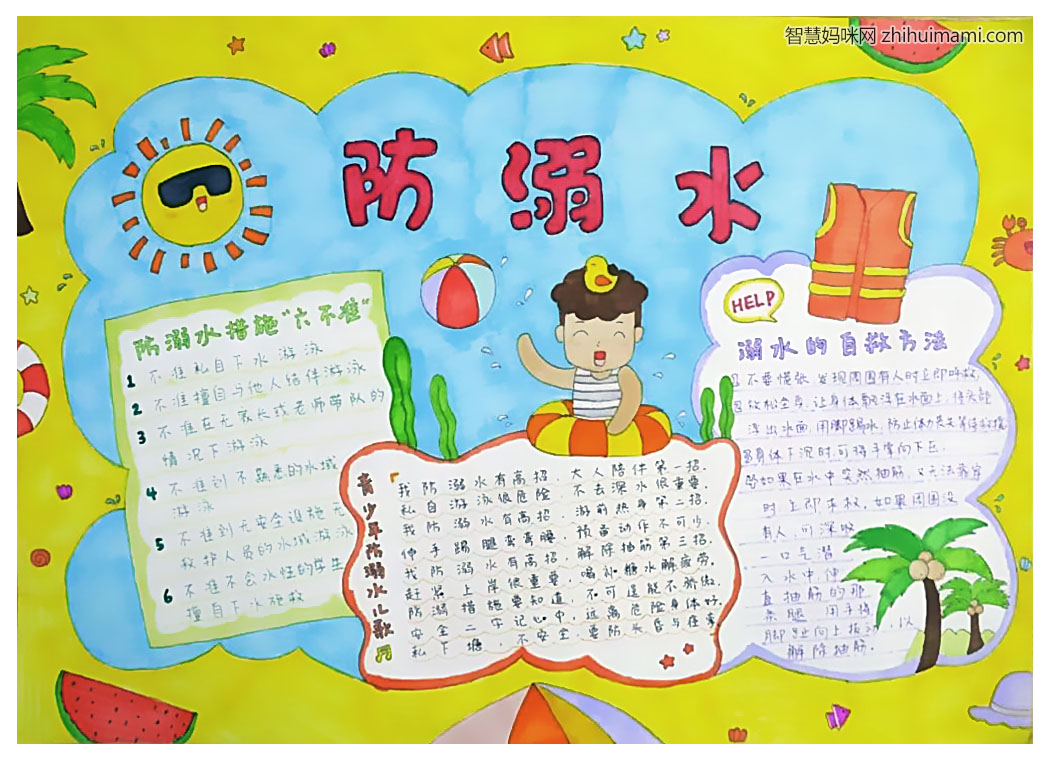 智慧妈咪网 zhihuimami.com
防溺水
防溺水措施“六不准”
1 不准私自下水游泳
2 不准擅自与他人结伴游泳
3 不准在无家长或老师带队的
情况下游泳
4 不准到不熟悉的水域
游泳
5 不准到无安全设施无
救护人员的水域游泳
6 不准不会水性的学生
擅自下水施救
青少年防溺水儿歌
我防溺水有高招，大人陪伴第一招。
私自游泳很危险，不去深水很重要。
我防溺水有高招，游前热身第二招。
伸手踢腿弯弯腰，预备动作不可少。
我防溺水有高招，解除抽筋第三招。
赶紧上岸很重要，喝补糖水解疲劳。
防溺措施要知道，不可逞能不骄傲。
安全二字记心中，远离危险身体好。
私下塘，不安全，要防头昏与
HELP
溺水的自救方法
①不要慌张，发现周围有人时立即呼救，
②放松全身，让身体飘浮在水面上，将头部
浮出水面，用脚踢水，防止体力丧失等待救援
③身体下沉时，可将手掌向下压
④如果在水中突然抽筋，又无法靠岸
时，立即求救，如果周围没
有人，可深吸
一口气潜
入水中，伸
直抽筋的那
条腿，用手将
脚趾向上扳动，以
解除抽筋。